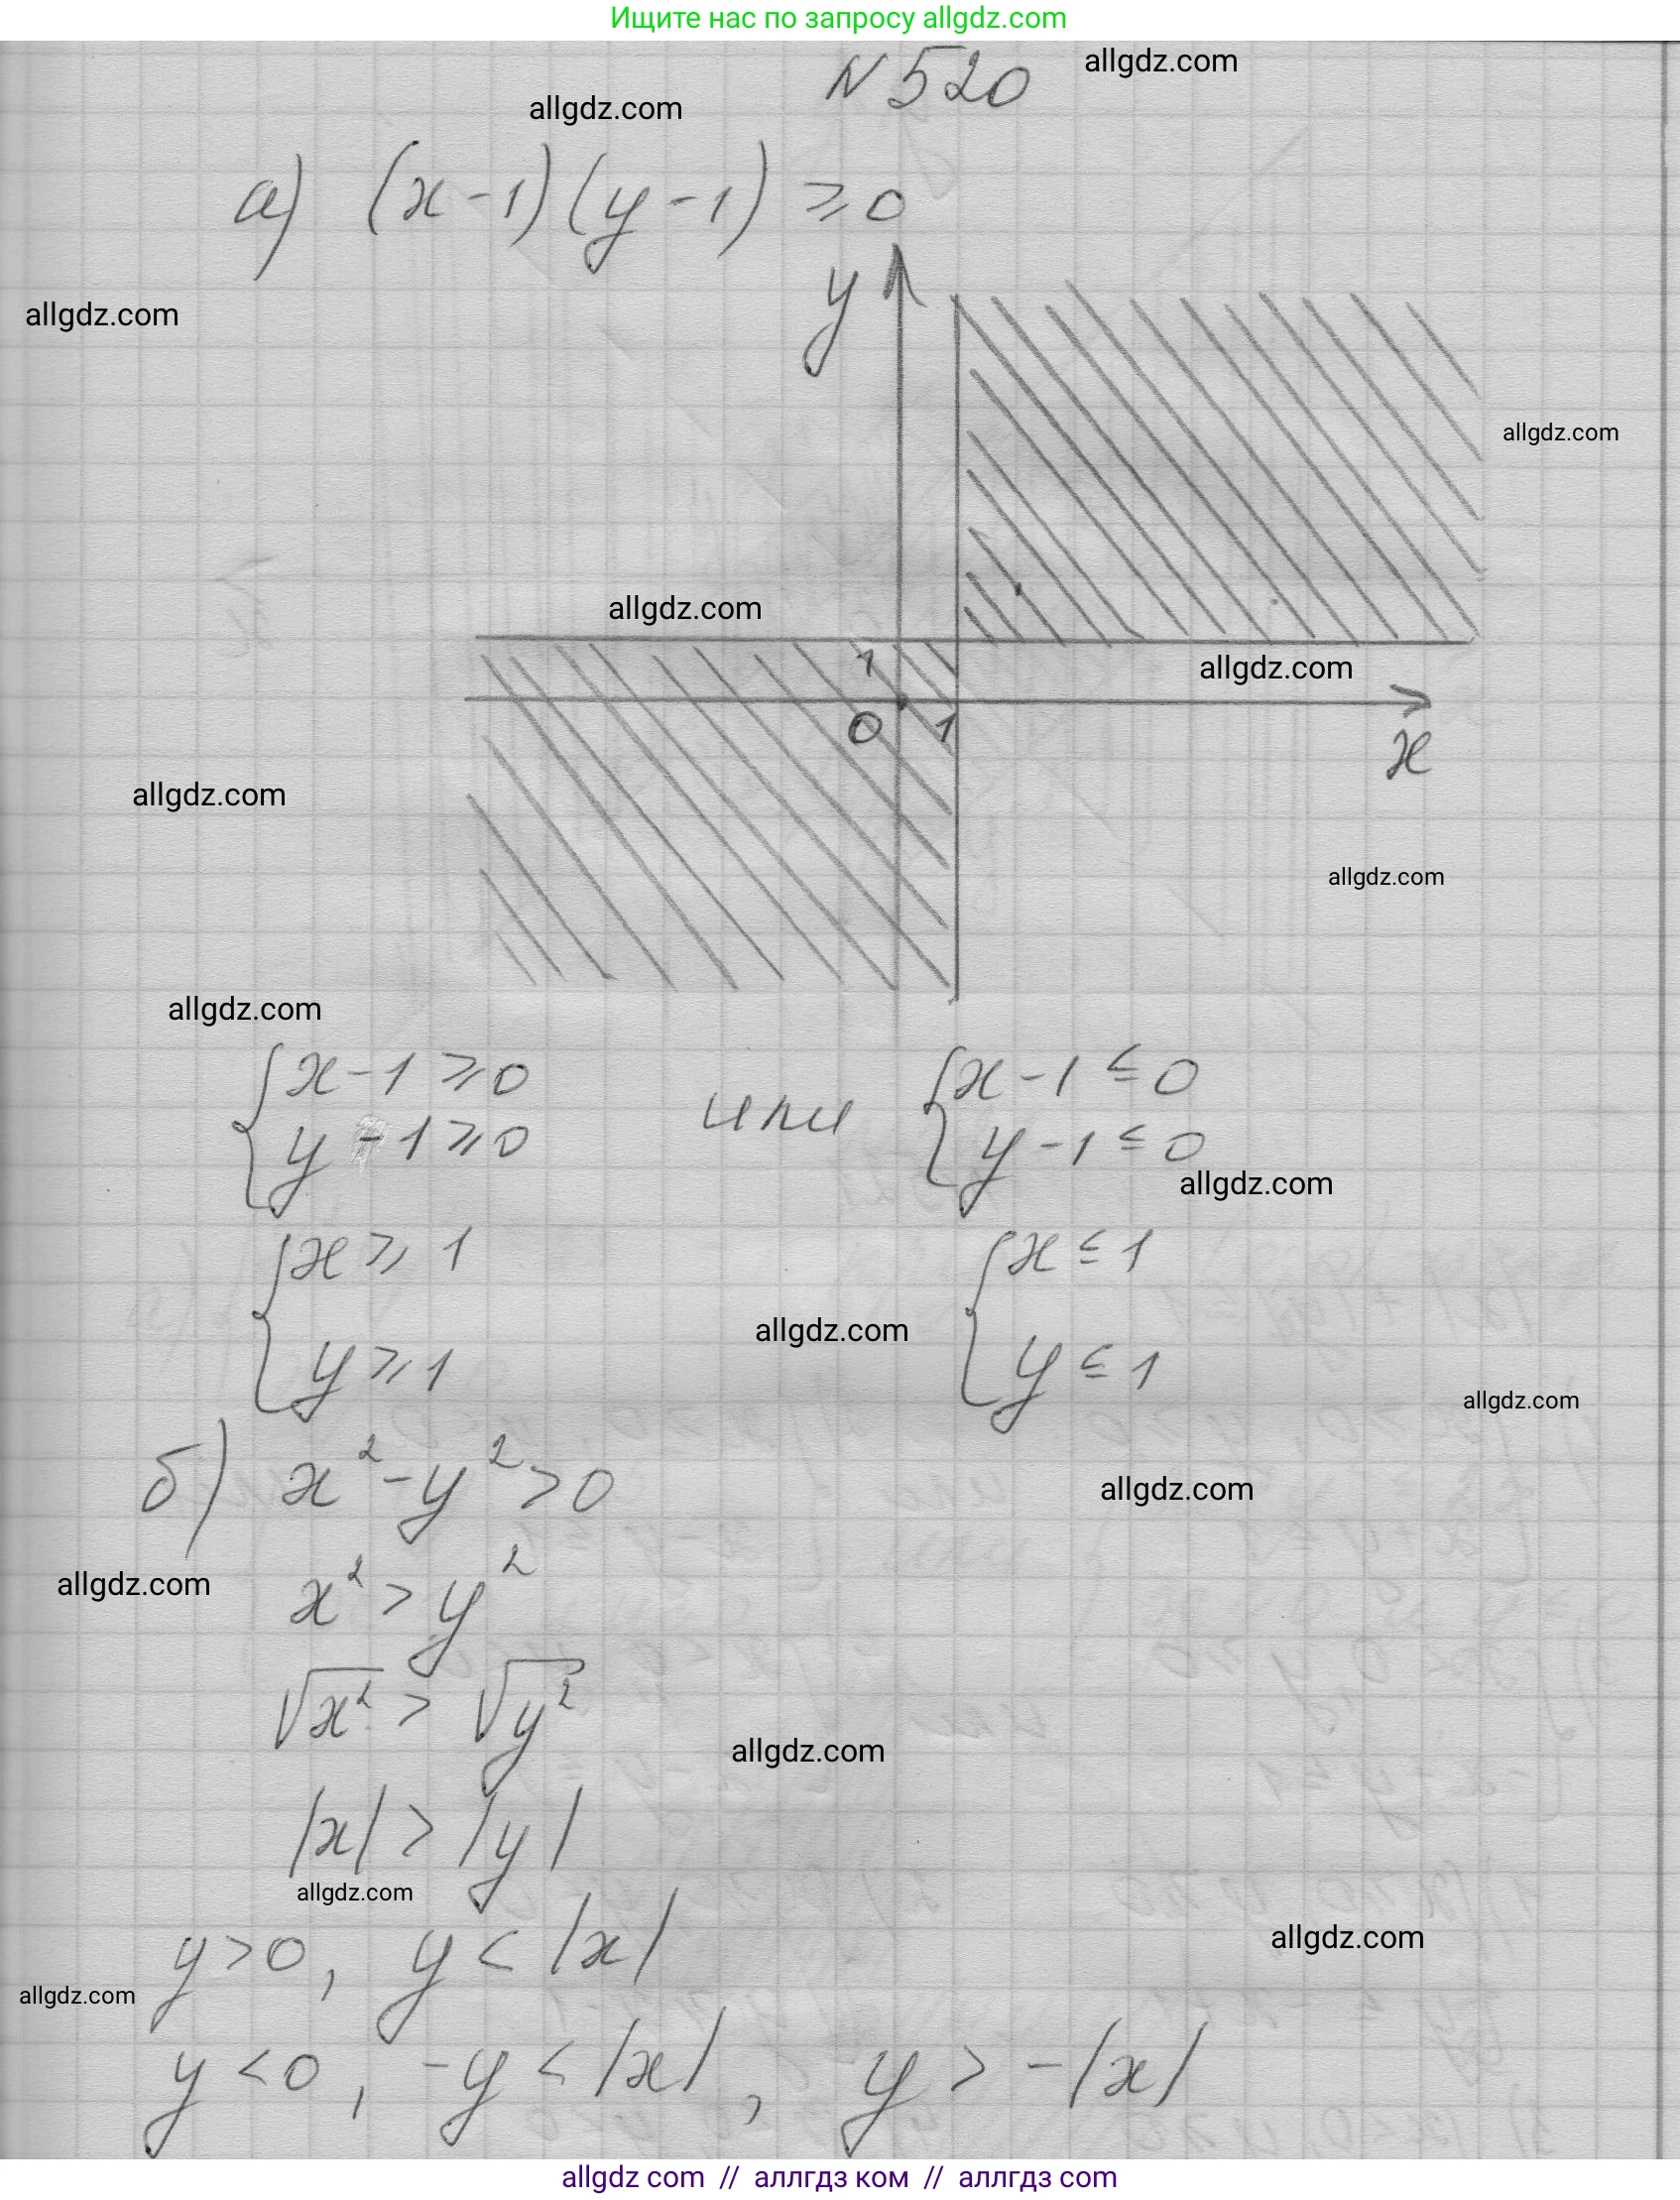 Ищите нас по запросу allgdz.com
N 520
allgdz.com
allgdz.com
а) (x-1)(y-1) ⩾ 0
y
allgdz.com
allgdz.com
allgdz.com
1
allgdz.com
0 1
x
allgdz.com
allgdz.com
allgdz.com
{x-1 ⩾ 0 или {x-1 ≤ 0
y-1 ⩾ 0 y-1 ≤ 0
allgdz.com
{x ⩾ 1 {x ≤ 1
allgdz.com
y ⩾ 1 y ≤ 1
allgdz.com
б) x²-y²>0
allgdz.com
allgdz.com
x² > y²
√x² > √y²
allgdz.com
|x| > |y|
allgdz.com
y>0, y < |x|
allgdz.com
allgdz.com
y<0, -y < |x|, y > -|x|
allgdz com // аллгдз ком // аллгдз com